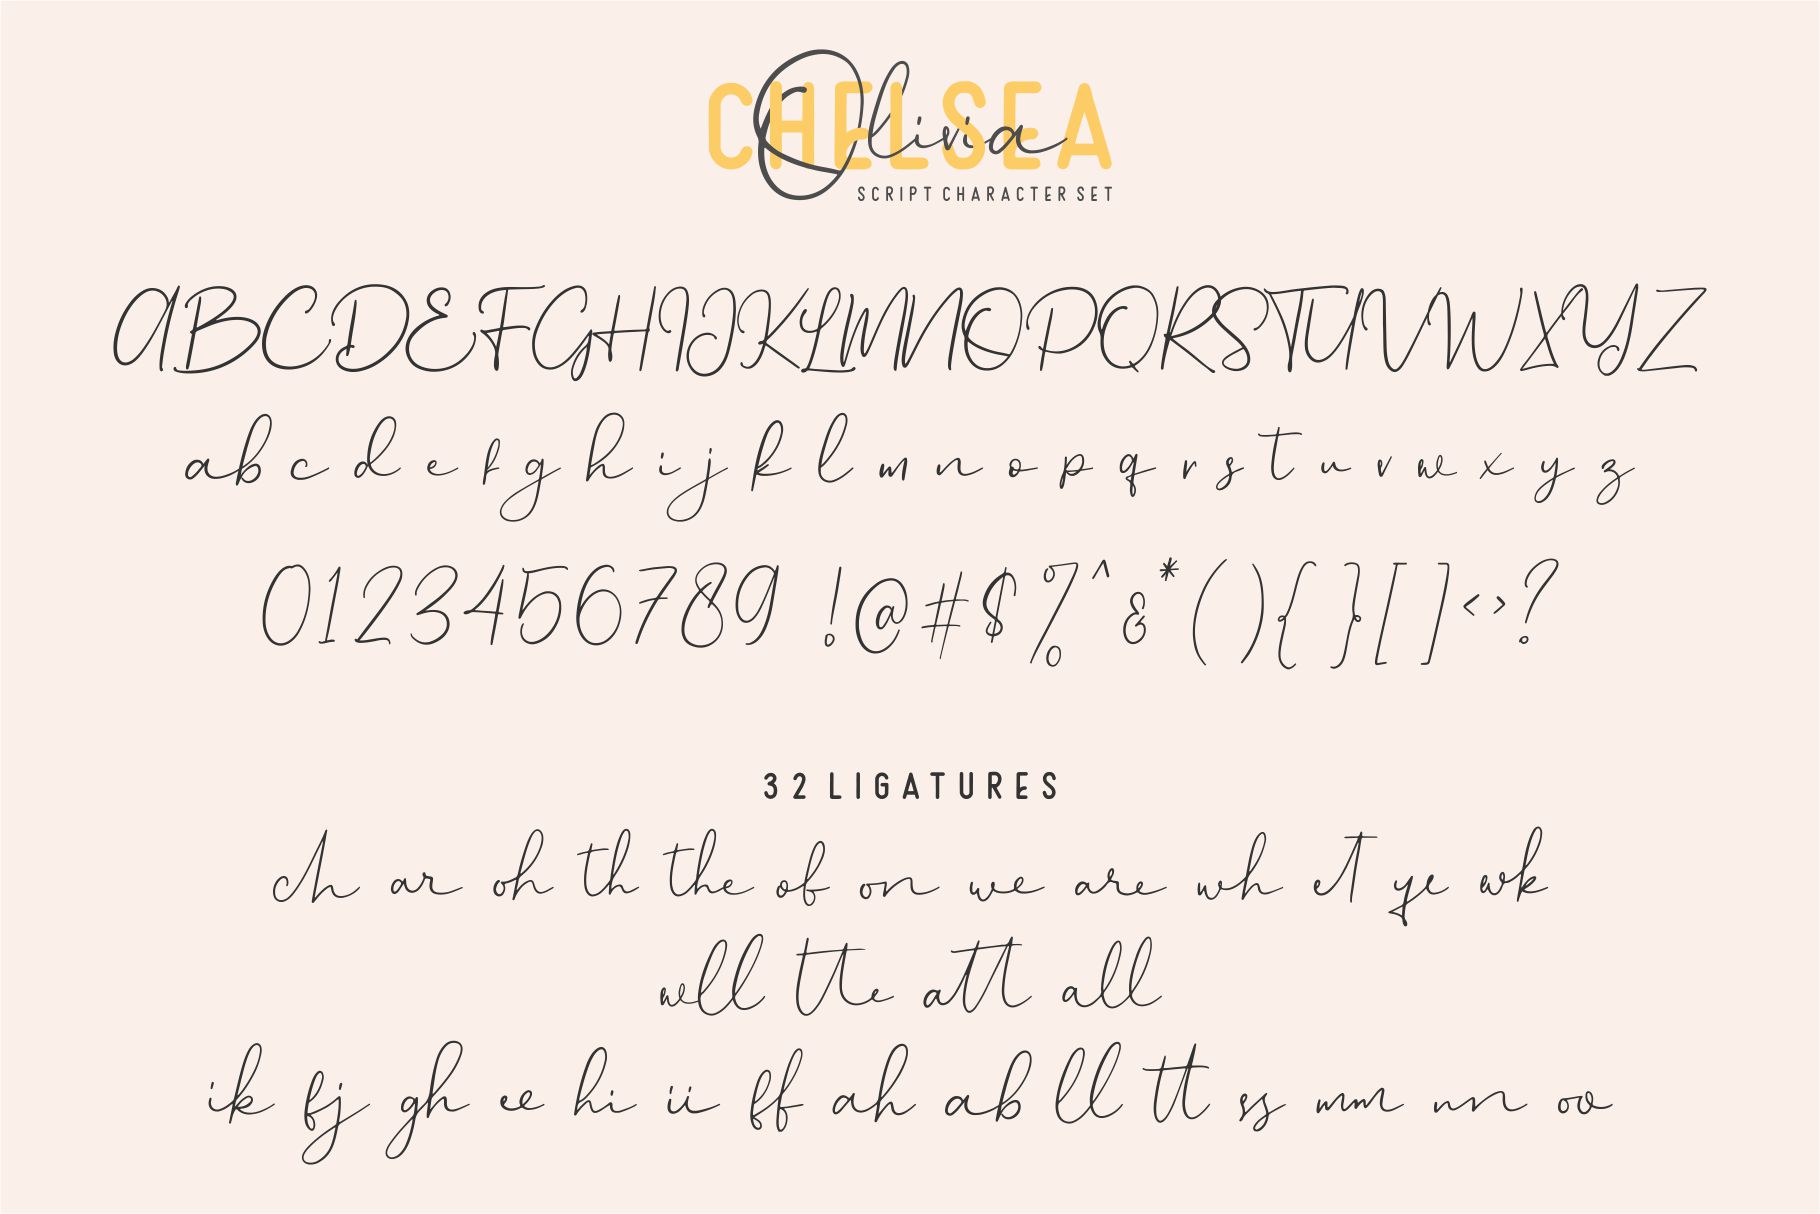 CHELSEA
Olivia
SCRIPT CHARACTER SET
ABCDEFGHIJKLMNOPQRSTUVWXYZ
a b c d e f g h i j k l m n o p q r s t u v w x y z
0123456789 !@#$%^&*(){}[]<>?
32 LIGATURES
ch ar oh th the of on we are wh et ye wk
will tte att all
ik fj gh ee hi ii ff ah ab ll tt ss mm nn oo